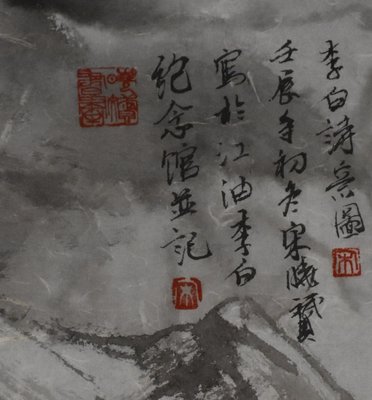 李白詩兴圖
壬辰年初冬宋曉贇
寫於江油李白
紀念館並記
宋
宋